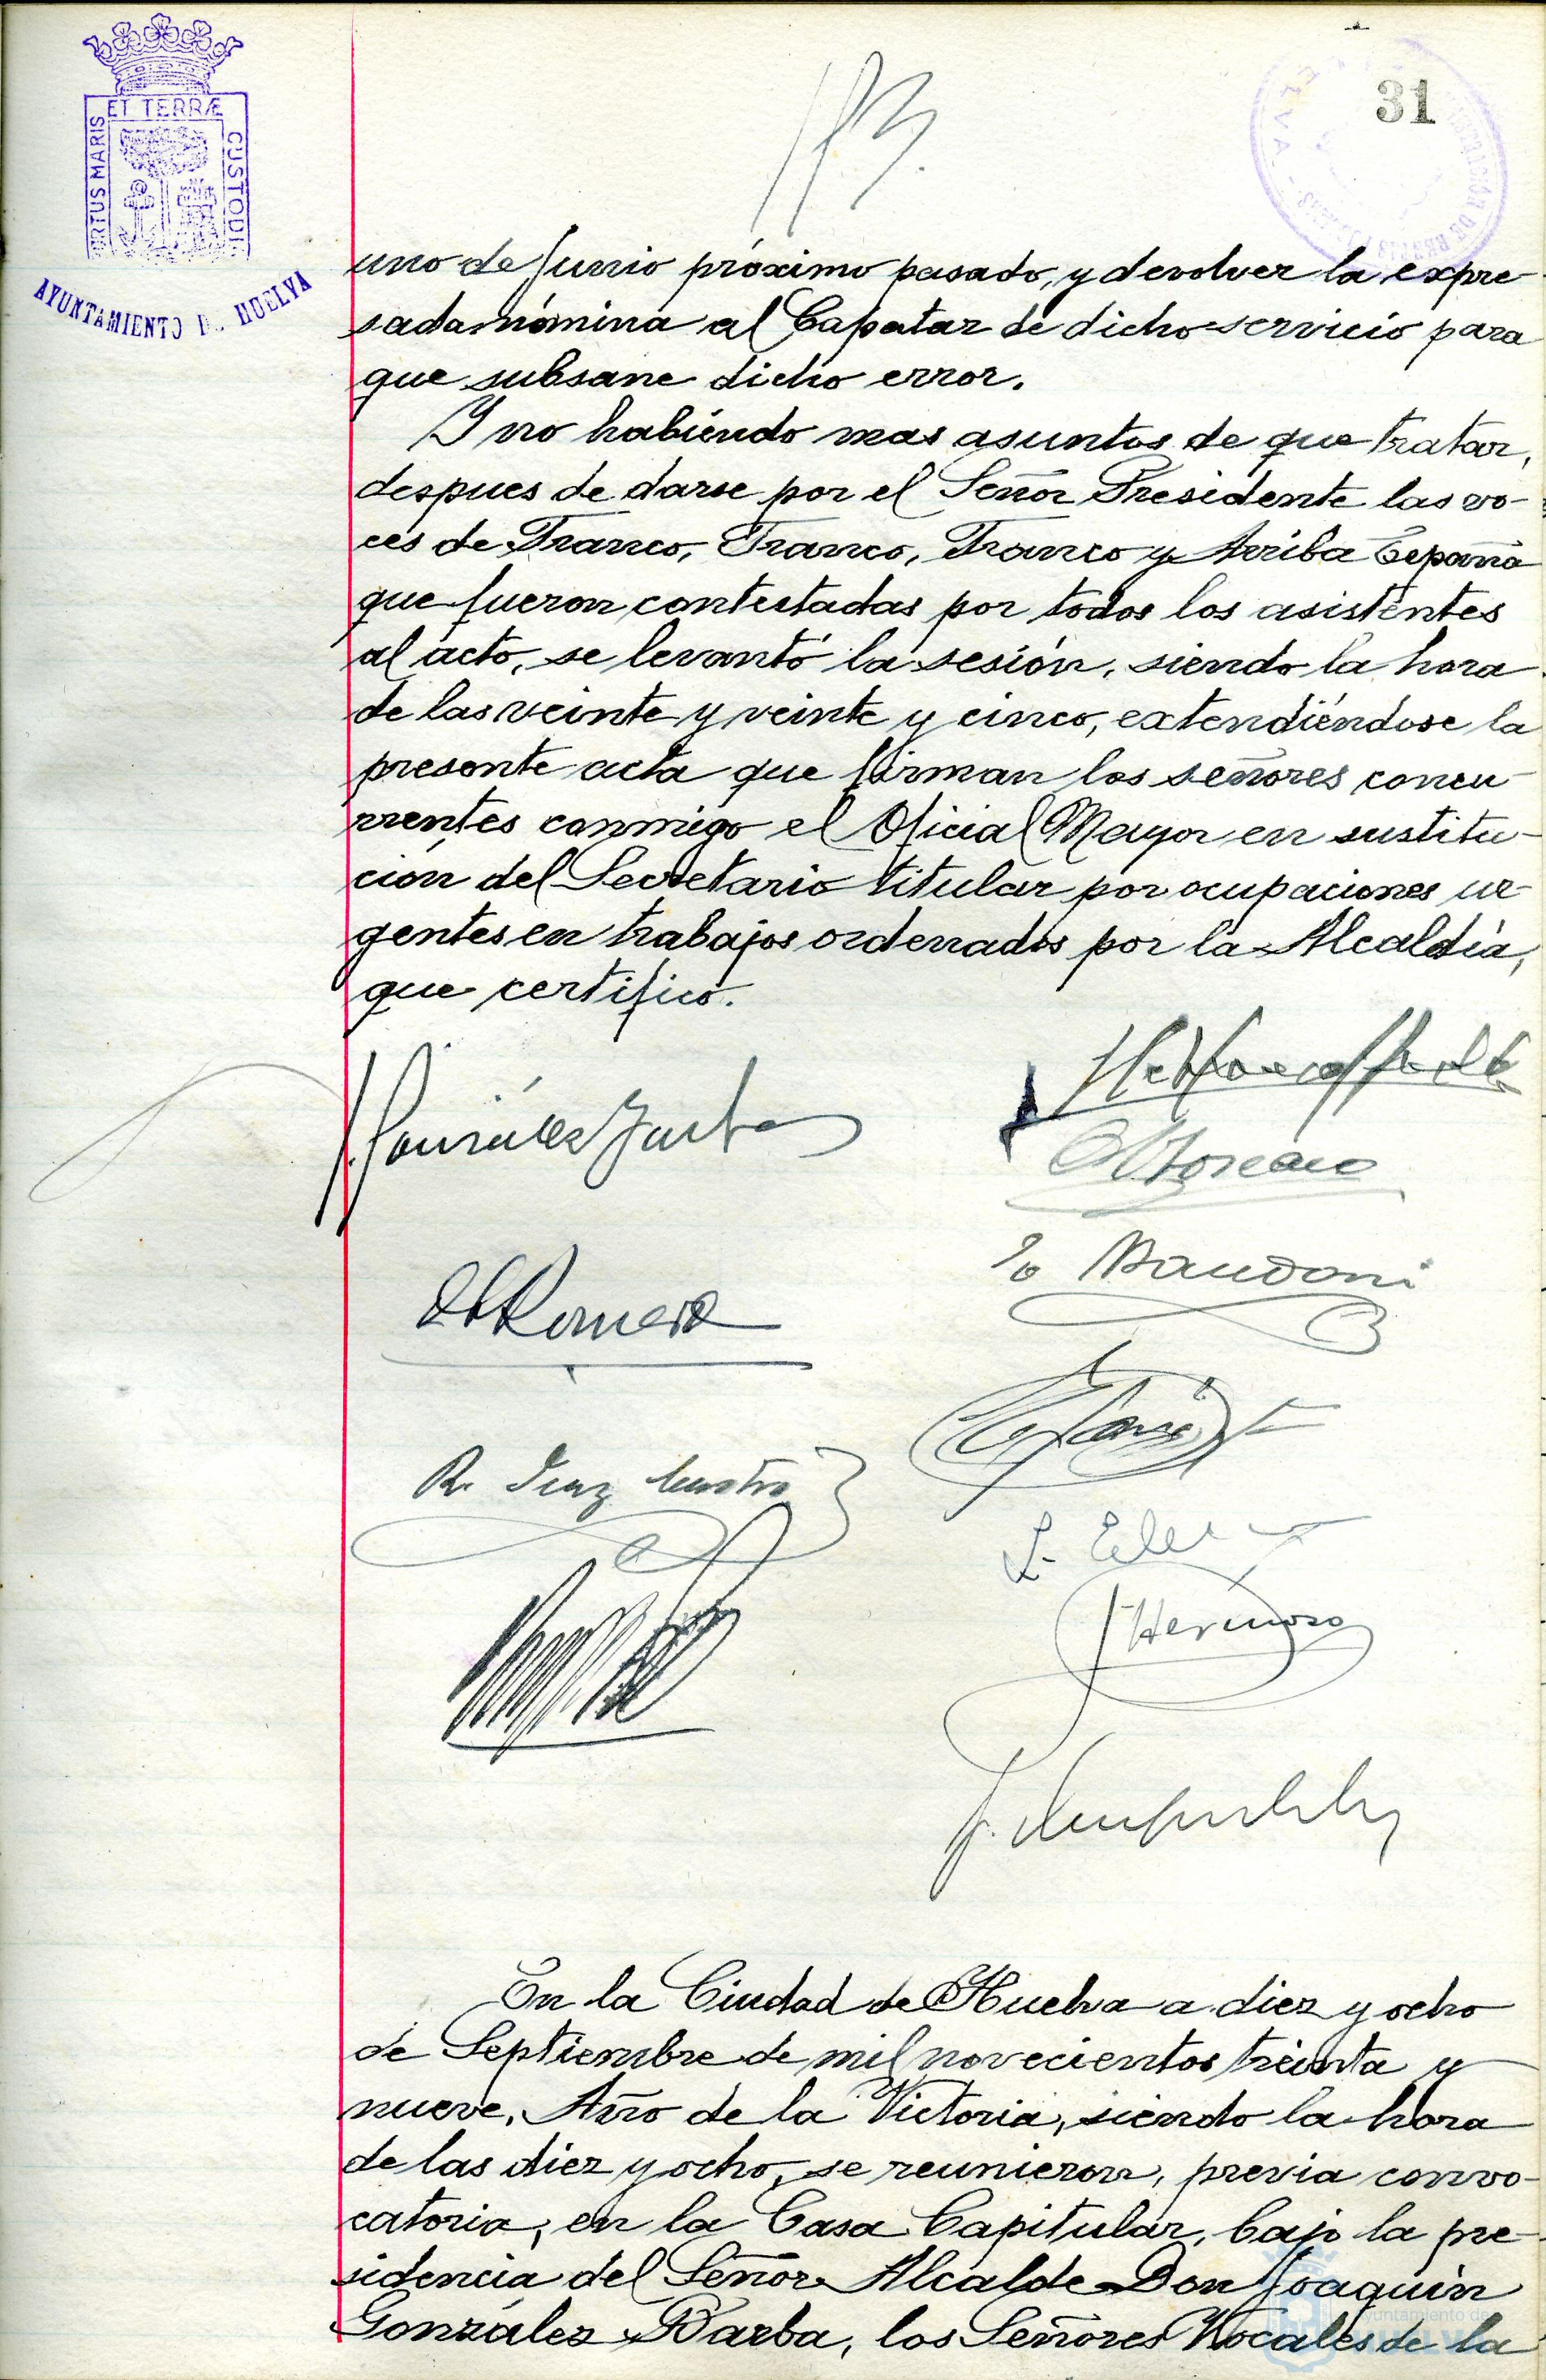 ET TERRÆ
CUSTODI
31
AYUNTAMIENTO DE HUELVA
uno de Junio próximo pasado, y devolver la expre-
sada nómina al Capataz de dicho servicio para
que subsane dicho error.
Y no habiéndo mas asuntos de que tratar,
despues de darse por el Señor Presidente las vo-
ces de Franco, Franco, Franco y Arriba España
que fueron contestadas por todos los asistentes
al acto, se levantó la sesión, siendo la hora
de las veinte y veinte y cinco, extendiéndose la
presente acta que firman los señores concu-
rrentes conmigo el Oficial Mayor en sustitu-
ción del Secretario titular por ocupaciones ur-
gentes en trabajos ordenados por la Alcaldía,
que certifico.
J. González Barba
Romero
R. Diaz
J Hermoso
En la Ciudad de Huelva a diez y ocho
de Septiembre de mil novecientos treinta y
nueve, Año de la Victoria, siendo la hora
de las diez y ocho, se reunieron, previa convo-
catoria, en la Casa Capitular, bajo la pre-
sidencia del Señor Alcalde Don Joaquin
González Barba, los Señores Vocales de la
Ayuntamiento de
HUELVA